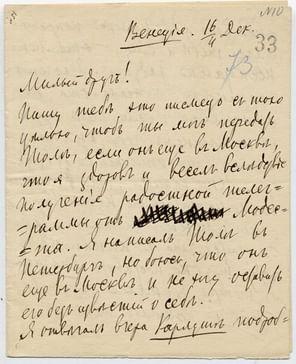 №10
Венеція. 16/4 Дек.
33
73
Милый другъ!
Пишу тебѣ это письмецо съ тою
цѣлью, чтобъ ты могъ передать
Толѣ, если онъ еще въ Москвѣ,
что я здоровъ и веселъ вслѣдствіе
полученія радостной теле-
=граммы отъ Модес-
=та. Я написалъ Толѣ въ
Петербургъ, но боюсь, что онъ
еще въ Москвѣ и не хочу оставить
его безъ извѣстій о себѣ.
Я отвѣчалъ вчера Карлушѣ подроб-